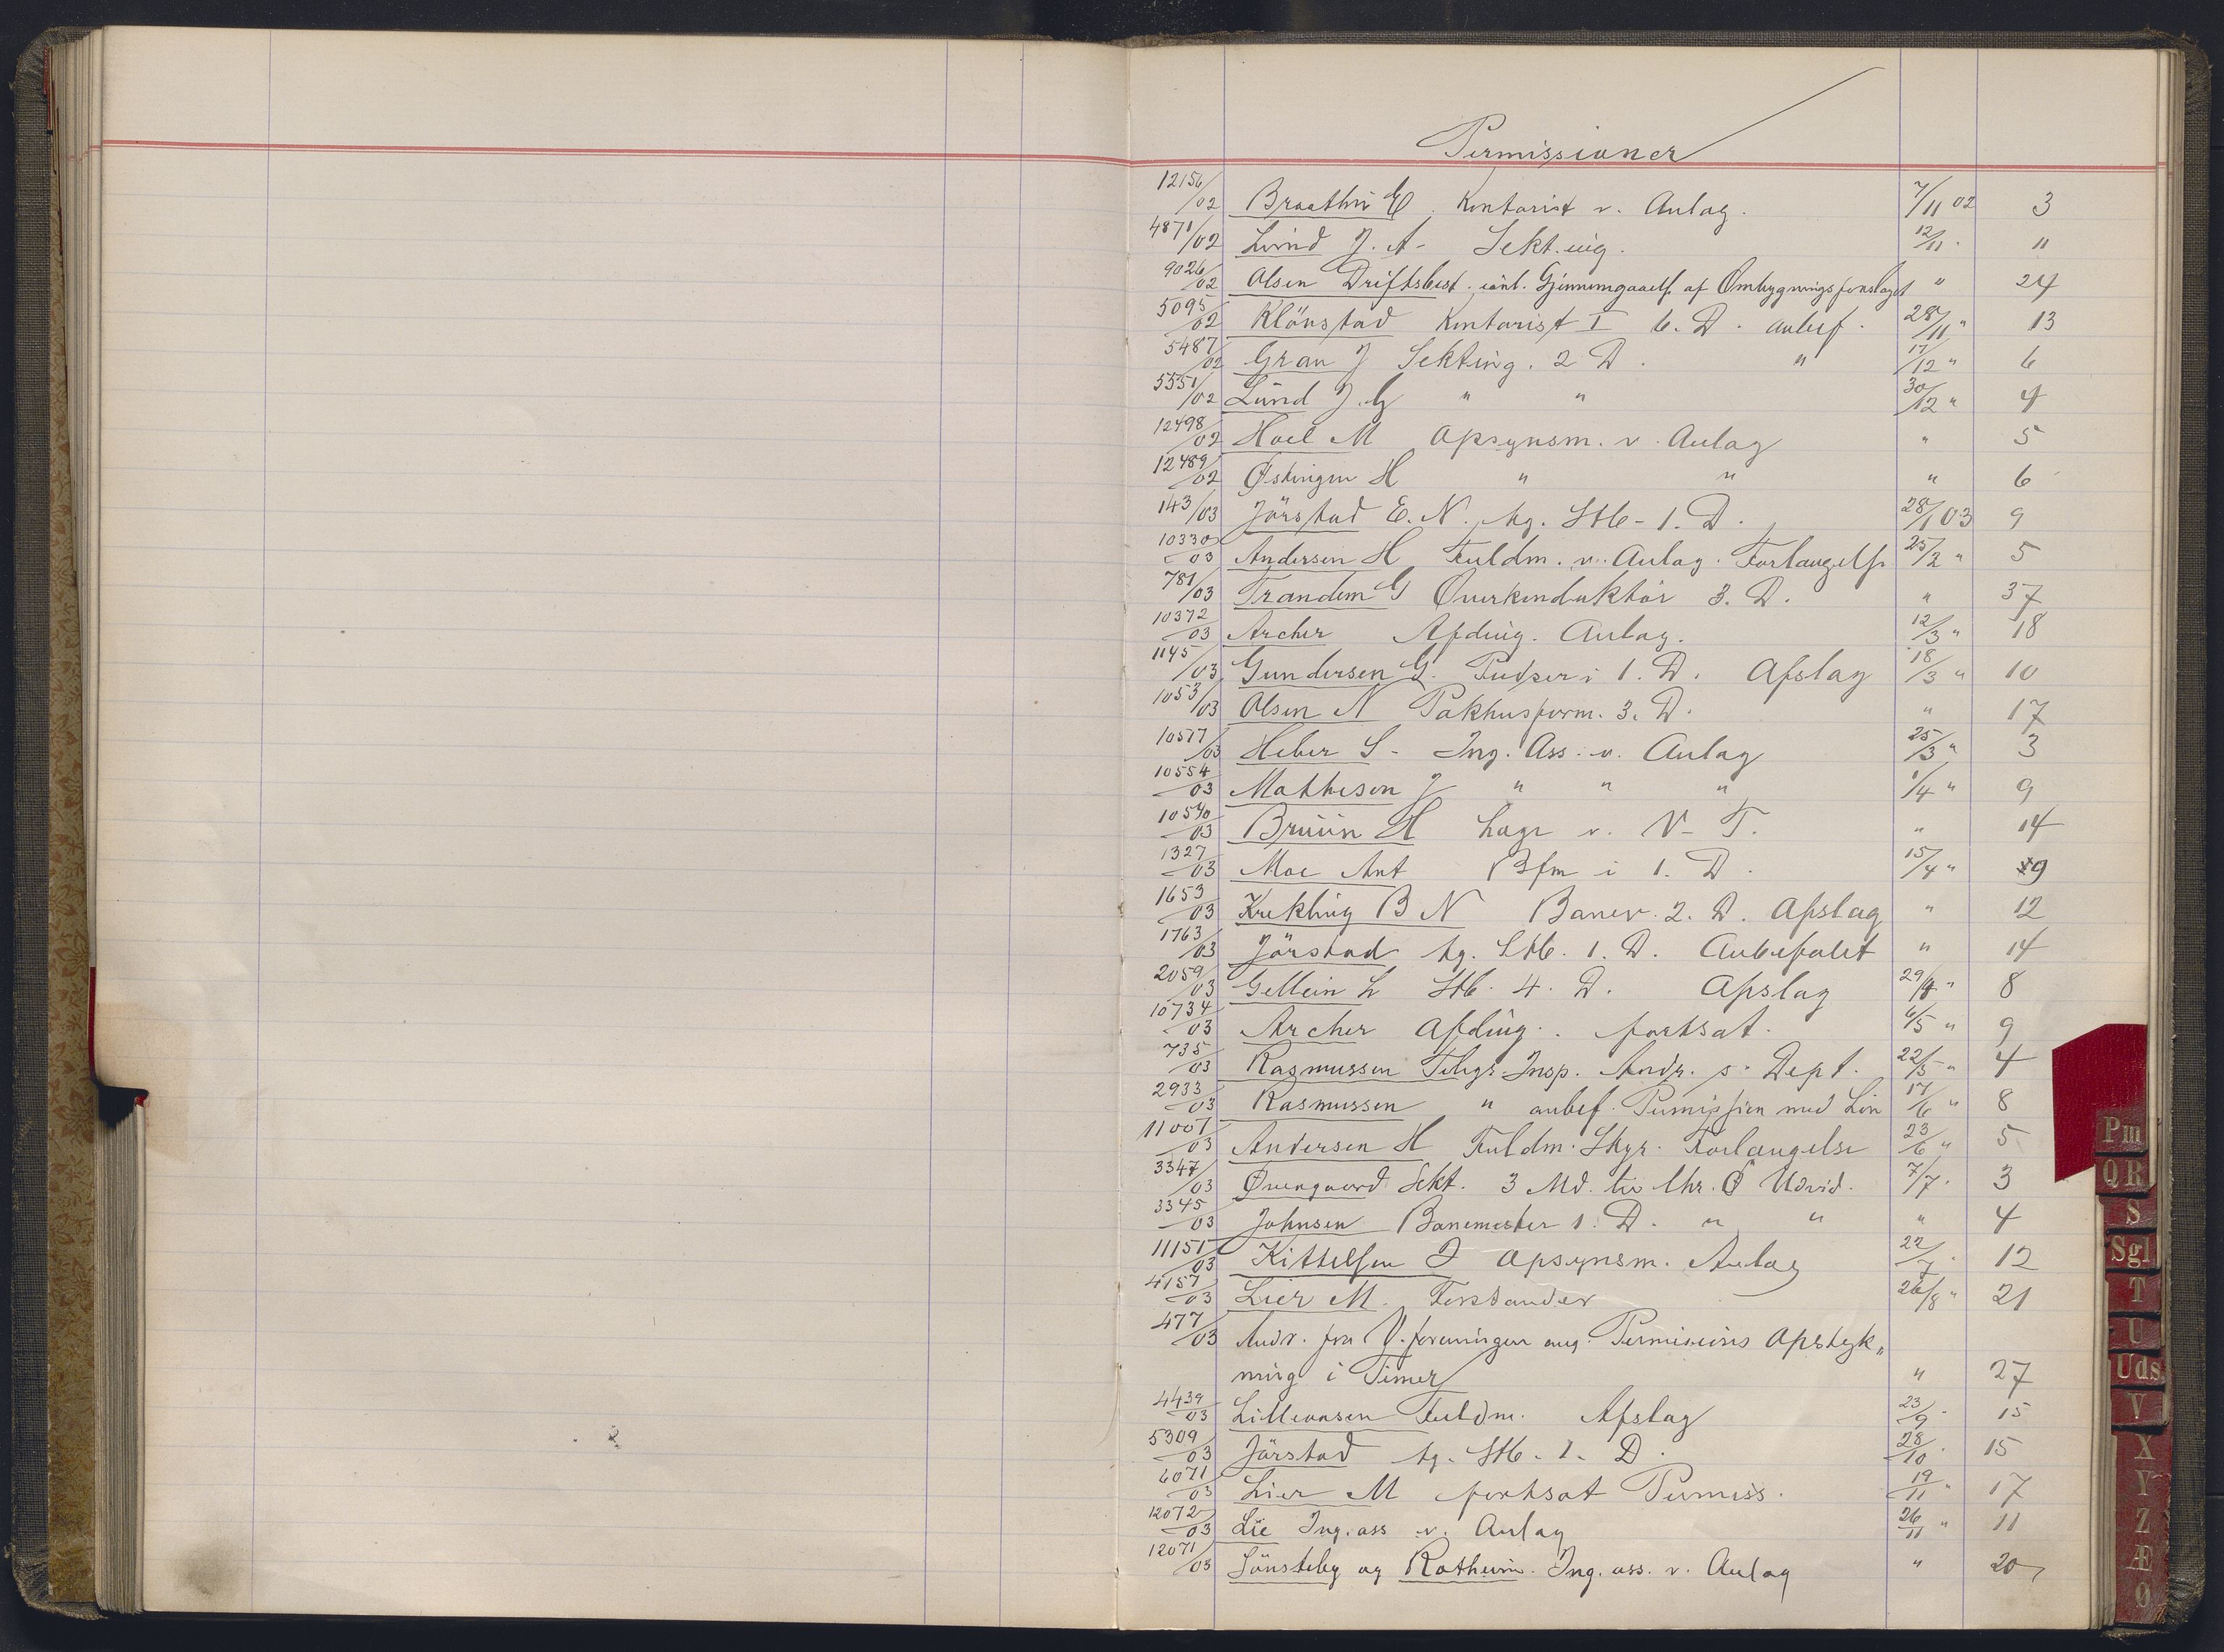 Permissioner
12156/02 Braathen E. Kontorist v. Anlæg. 7/11 02 3
4871/02 Lund J. A. Sekt.ing. 12/11 " 11
9026/02 Olsen Driftsbest. Gjennemgaaels. af Ombygningsforslaget " 24
5095/02 Klönstad Kontorist I 6. D. anbef. 28/11 " 13
5487/02 Gran J Sekting. 2 D. " 17/12 " 6
5551/02 Lund J. G " " 30/12 " 4
12498/02 Hoel M Opsynsm. v. Anlæg " 5
12489/02 Østingen H " " " 6
143/03 Jörstad E. N. tg. Stb. 1. D. 28/1 03 9
10330/03 Andersen H Fuldm. v. Anlæg. Forlængelse 25/2 " 5
781/03 Trandem G Overkonduktör 3. D. " 37
10372/03 Archer Afding. Anlæg. 12/3 " 18
1145/03 Gundersen G. Pudser i 1. D. Afslag 18/3 " 10
1053/03 Olsen N Pakhusform. 3. D. " 17
10577/03 Heber S. Ing. Ass. v. Anlæg 25/3 " 3
10554/03 Mathisen J " " " 1/4 " 9
10540/03 Bruun H Lagr v. V- T. " 14
1327/03 Moe Ant Bfm i 1. D. 15/4 " 9
1653/03 Krekling B N Banev. 2. D. Afslag " 12
1763/03 Jörstad tg. Stb. 1. D. Anbefalet " 14
2059/03 Gellein L Stb. 4. D. Afslag 29/4 " 8
10734/03 Archer Afding. fortsat. 6/5 " 9
735/03 Rasmussen Telegr. Insp. Andr. s. Dept. 22/5 " 4
2933/03 Rasmussen " anbef. Permission med Lön 17/6 " 8
11001/03 Andersen H Fuldm. Styr. Forlængelse 23/6 " 5
3347/03 Övergaard Sekt. 3 Md. Chr. Ø Udvid. 7/7 " 3
3345/03 Johnsen Banemester 1. D. " " " 4
11151/03 Kittelsen J Opsynsm. Anlæg 22/7 " 12
4157/03 Lier M. Forstander 26/8 " 21
477/03 Andr. fra V. foreningen ang. Permissions Opstyk„
ning i Timer " 27
4439/03 Lillevansen Fuldm. Afslag 23/9 " 15
5309/03 Jörstad tg. Stb. 1. D. 28/10 " 15
6071/03 Lier M fortsat Permiss. 19/11 " 17
12072/03 Lie Ing. ass v. Anlæg 26/11 " 11
12071/03 Sönsteby og Rotheim. Ing. ass. v. Anlæg " 20
Pm
Q R
S
Sgl
T
U
Uds.
V
X
Y
Z
Æ
Ø